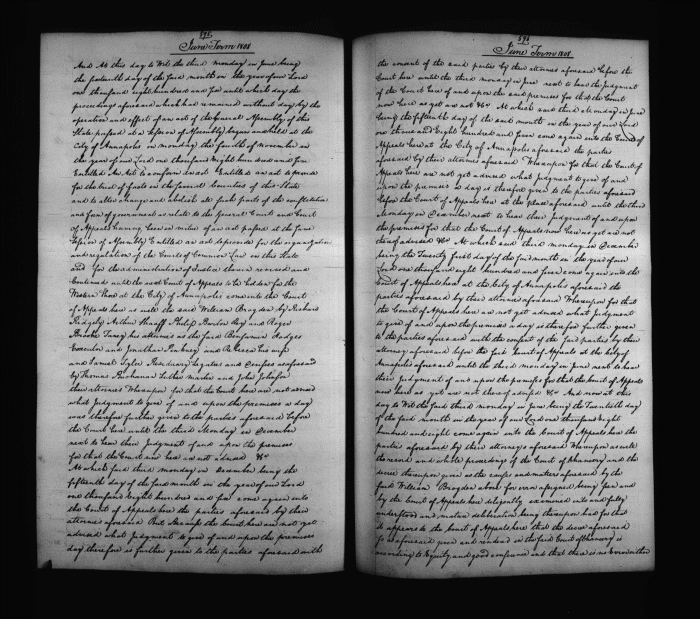 575
June Term 1808
And At this day to Wit the third monday in June being
the sixteenth day of the said month in the year of our Lord
one thousand eight hundred and six until which day the
proceedings aforesaid which had remained without day by the
operation and effect of an act of the General Assembly of this
State passed at a session of Assembly begun and held at the
City of Annapolis on monday the fourth of november in
the year of our Lord one thousand eight hundred and five
Entitled An Act to confirm an act Entitled an act to provide
for the trial of facts in the several Counties of this State
and to alter change and abolish all such parts of the constitution
and form of government as relate to the General Court and Court
of Appeals having been in virtue of an act passed at the same
session of Assembly Entitled an act to provide for the organization
and regulation of the Courts of Common Law in this State
and for the administration of Justice therein revived and
Continued until the next Court of Appeals to be holden for the
Western Shore at the City of Annapolis come into the Court
of Appeals here as well the said William Brogden by Richard
Ridgely Arthur Shaaff Philip Barton Key and Roger
Brooke Taney his attornies as the said Benjamin Hodges
Executor and Jonathan Pinkney and Rebecca his wife
and Samuel Tyler Residuary Legatees and Devisees as aforesaid
by Thomas Buchanan Luther Martin and John Johnson
their attornies Whereupon for that the Court here are not advised
what Judgment to give of and upon the premises a day
was therefore further given to the parties aforesaid before
the Court here until the third Monday in December
next to hear their Judgment of and upon the premises
for that the Court now here is not advised &c
At which said third monday in December being the
fifteenth day of the said month in the year of our Lord
one thousand eight hundred and six come again into
the Court of Appeals here the parties aforesaid by their
attornies aforesaid But because the Court here are not yet
advised what Judgment to give of and upon the premises
day therefore is further given to the parties aforesaid with
576
June Term 1808
the consent of the said parties by their attornies aforesaid before the
Court here until the third monday in June next to hear the Judgment
of the Court here of and upon the said premises for that the Court
now here as yet are not &c At which said third Monday in June
being the fifteenth day of the said month in the year of our Lord
one thousand Eight hundred and seven come again into the Court of
Appeals here at the City of Annapolis aforesaid the parties
aforesaid by their attornies aforesaid Whereupon for that the Court of
Appeals here are not yet advised what Judgment to give of and
upon the premises a day is therefore given to the parties aforesaid
before the Court of Appeals here at the place aforesaid until the third
Monday in December next to hear their Judgement of and upon
the premises for that the Court of Appeals now here as yet are not
thereof advised &c At which said third monday in December
being the Twenty first day of the said month in the year of our
Lord one thousand eight hundred and seven come again into the
Court of Appeals here at the City of Annapolis aforesaid the
parties aforesaid by their attornies aforesaid Whereupon for that
the Court of Appeals here are not yet advised what Judgment
to give of and upon the premises a day is therefore further given
to the parties aforesaid with the consent of the said parties by their
Attorney aforesaid before the said Court of Appeals at the City of
Annapolis aforesaid until the third monday in June next to hear
their Judgment of and upon the premises for that the Court of Appeals
now here as yet are not thereof advised &c And now at this
day to Wit the said third monday in June being the Twentieth day
of the said month in the year of our Lord one thousand eight
hundred and eight come again into the Court of Appeals here the
parties aforesaid by their attornies aforesaid Whereupon as well
the record and whole proceedings of the Court of Chancery and the
decree thereupon given as the causes and matters aforesaid by the
said William Brogden above for error assigned being seen and
by the Court of Appeals here diligently examined into and fully
understood and mature deliberation being thereupon had for that
it appears to the Court of Appeals here that the decree aforesaid
so as aforesaid given and rendered in the said Court of Chancery is
according to Equity and good conscience and that there is no error either